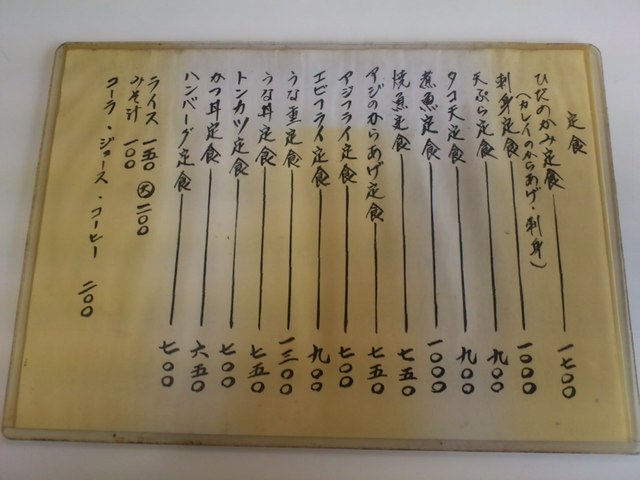 定食
ひだのかみ定食 一七〇〇
(カレイのからあげ・刺身)
刺身定食 一〇〇〇
天ぷら定食 九〇〇
タコ天定食 九〇〇
煮魚定食 一〇〇〇
焼魚定食 七五〇
アジのからあげ定食 七五〇
アジフライ定食 七〇〇
エビフライ定食 九〇〇
うな重定食 一三〇〇
うな丼定食 七五〇
トンカツ定食 七〇〇
かつ丼定食 六五〇
ハンバーグ定食 七〇〇
ライス 一五〇 大 二〇〇
みそ汁 一〇〇
コーラ・ジュース・コーヒー 二〇〇